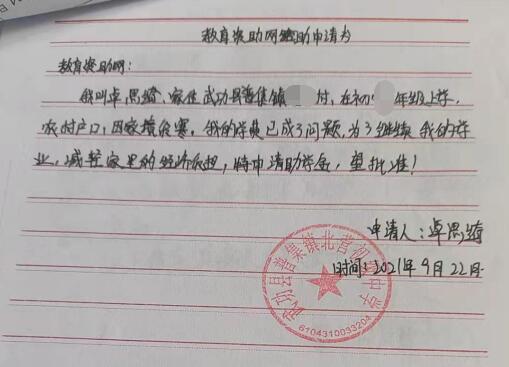 教育资助网络助申请书
教育资助网:
我叫卓思琦、家住武功县普集镇 村,在初 年级上学,
农村户口,因家境贫寒,我的学费已成了问题,为了继续我的学
业,减轻家里的经济负担,特申请助学金,望批准!
申请人:卓思琦
时间:2021年9月22日
武功县普集镇北营初级中学
6104310033204